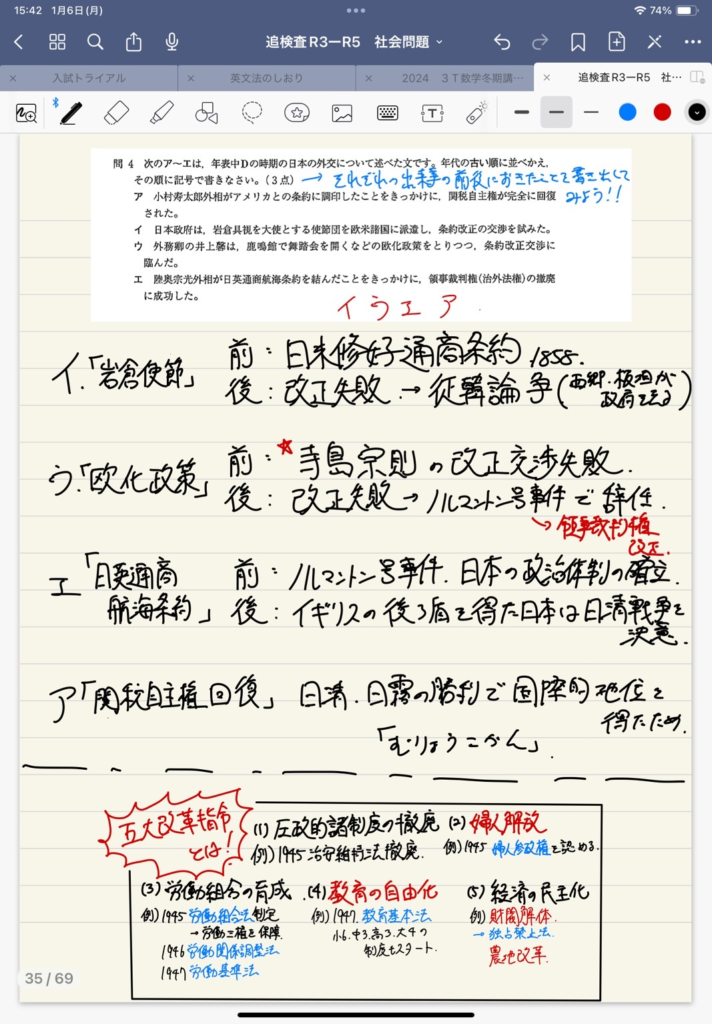 15:42 1月6日(月)
74%
追検査R3ーR5 社会問題
入試トライアル
英文法のしおり
2024 3T数学冬期講…
追検査R3ーR5 社…
問4 次のア〜エは，年表中Dの時期の日本の外交について述べた文です。年代の古い順に並べかえ，
その順に記号で書きなさい。(3点)
→それぞれの出来事の前後におきたことを書き出して
みよう!!
ア 小村寿太郎外相がアメリカとの条約に調印したことをきっかけに，関税自主権が完全に回復
された。
イ 日本政府は，岩倉具視を大使とする使節団を欧米諸国に派遣し，条約改正の交渉を試みた。
ウ 外務卿の井上馨は，鹿鳴館で舞踏会を開くなどの欧化政策をとりつつ，条約改正交渉に
臨んだ。
エ 陸奥宗光外相が日英通商航海条約を結んだことをきっかけに，領事裁判権(治外法権)の撤廃
に成功した。
イ ウ エ ア
イ.「岩倉使節」
前：日米修好通商条約 1858.
後：改正失敗→征韓論争(西郷.板垣が
政府を去る)
ウ.「欧化政策」
前：☆寺島宗則の改正交渉失敗.
後：改正失敗→ノルマントン号事件で辞任.
↪領事裁判権
改正.
エ「日英通商
航海条約」
前：ノルマントン号事件.日本の政治体制の確立.
後：イギリスの後ろ盾を得た日本は日清戦争を
決意.
ア「関税自主権回復」 日清.日露の勝利で国際的地位を
得たため.
「むりょうこかん」.
五大改革指令
とは!
(1) 圧政的諸制度の撤廃
例)1945 治安維持法撤廃.
(2) 婦人解放
例)1945 婦人参政権を認める.
(3) 労働組合の育成
例)1945 労働組合法制定
→労働三権を保障.
1946 労働関係調整法
1947 労働基準法
(4) 教育の自由化
例)1947. 教育基本法
小6.中3.高3.大4の
制度もスタート.
(5) 経済の民主化
例)財閥解体.
→独占禁止法.
農地改革.
35 / 69